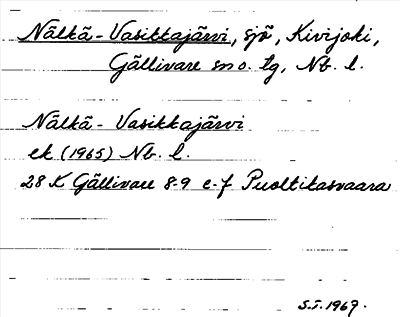 Nälkä-Vasikkajärvi, sjö, Kivijoki,
Gällivare sn o. tg, Nb. l.
Nälkä-Vasikkajärvi
ek (1965) Nb. l.
28 K Gällivare 8-9 e-f Puoltikasvaara
S.I. 1967.